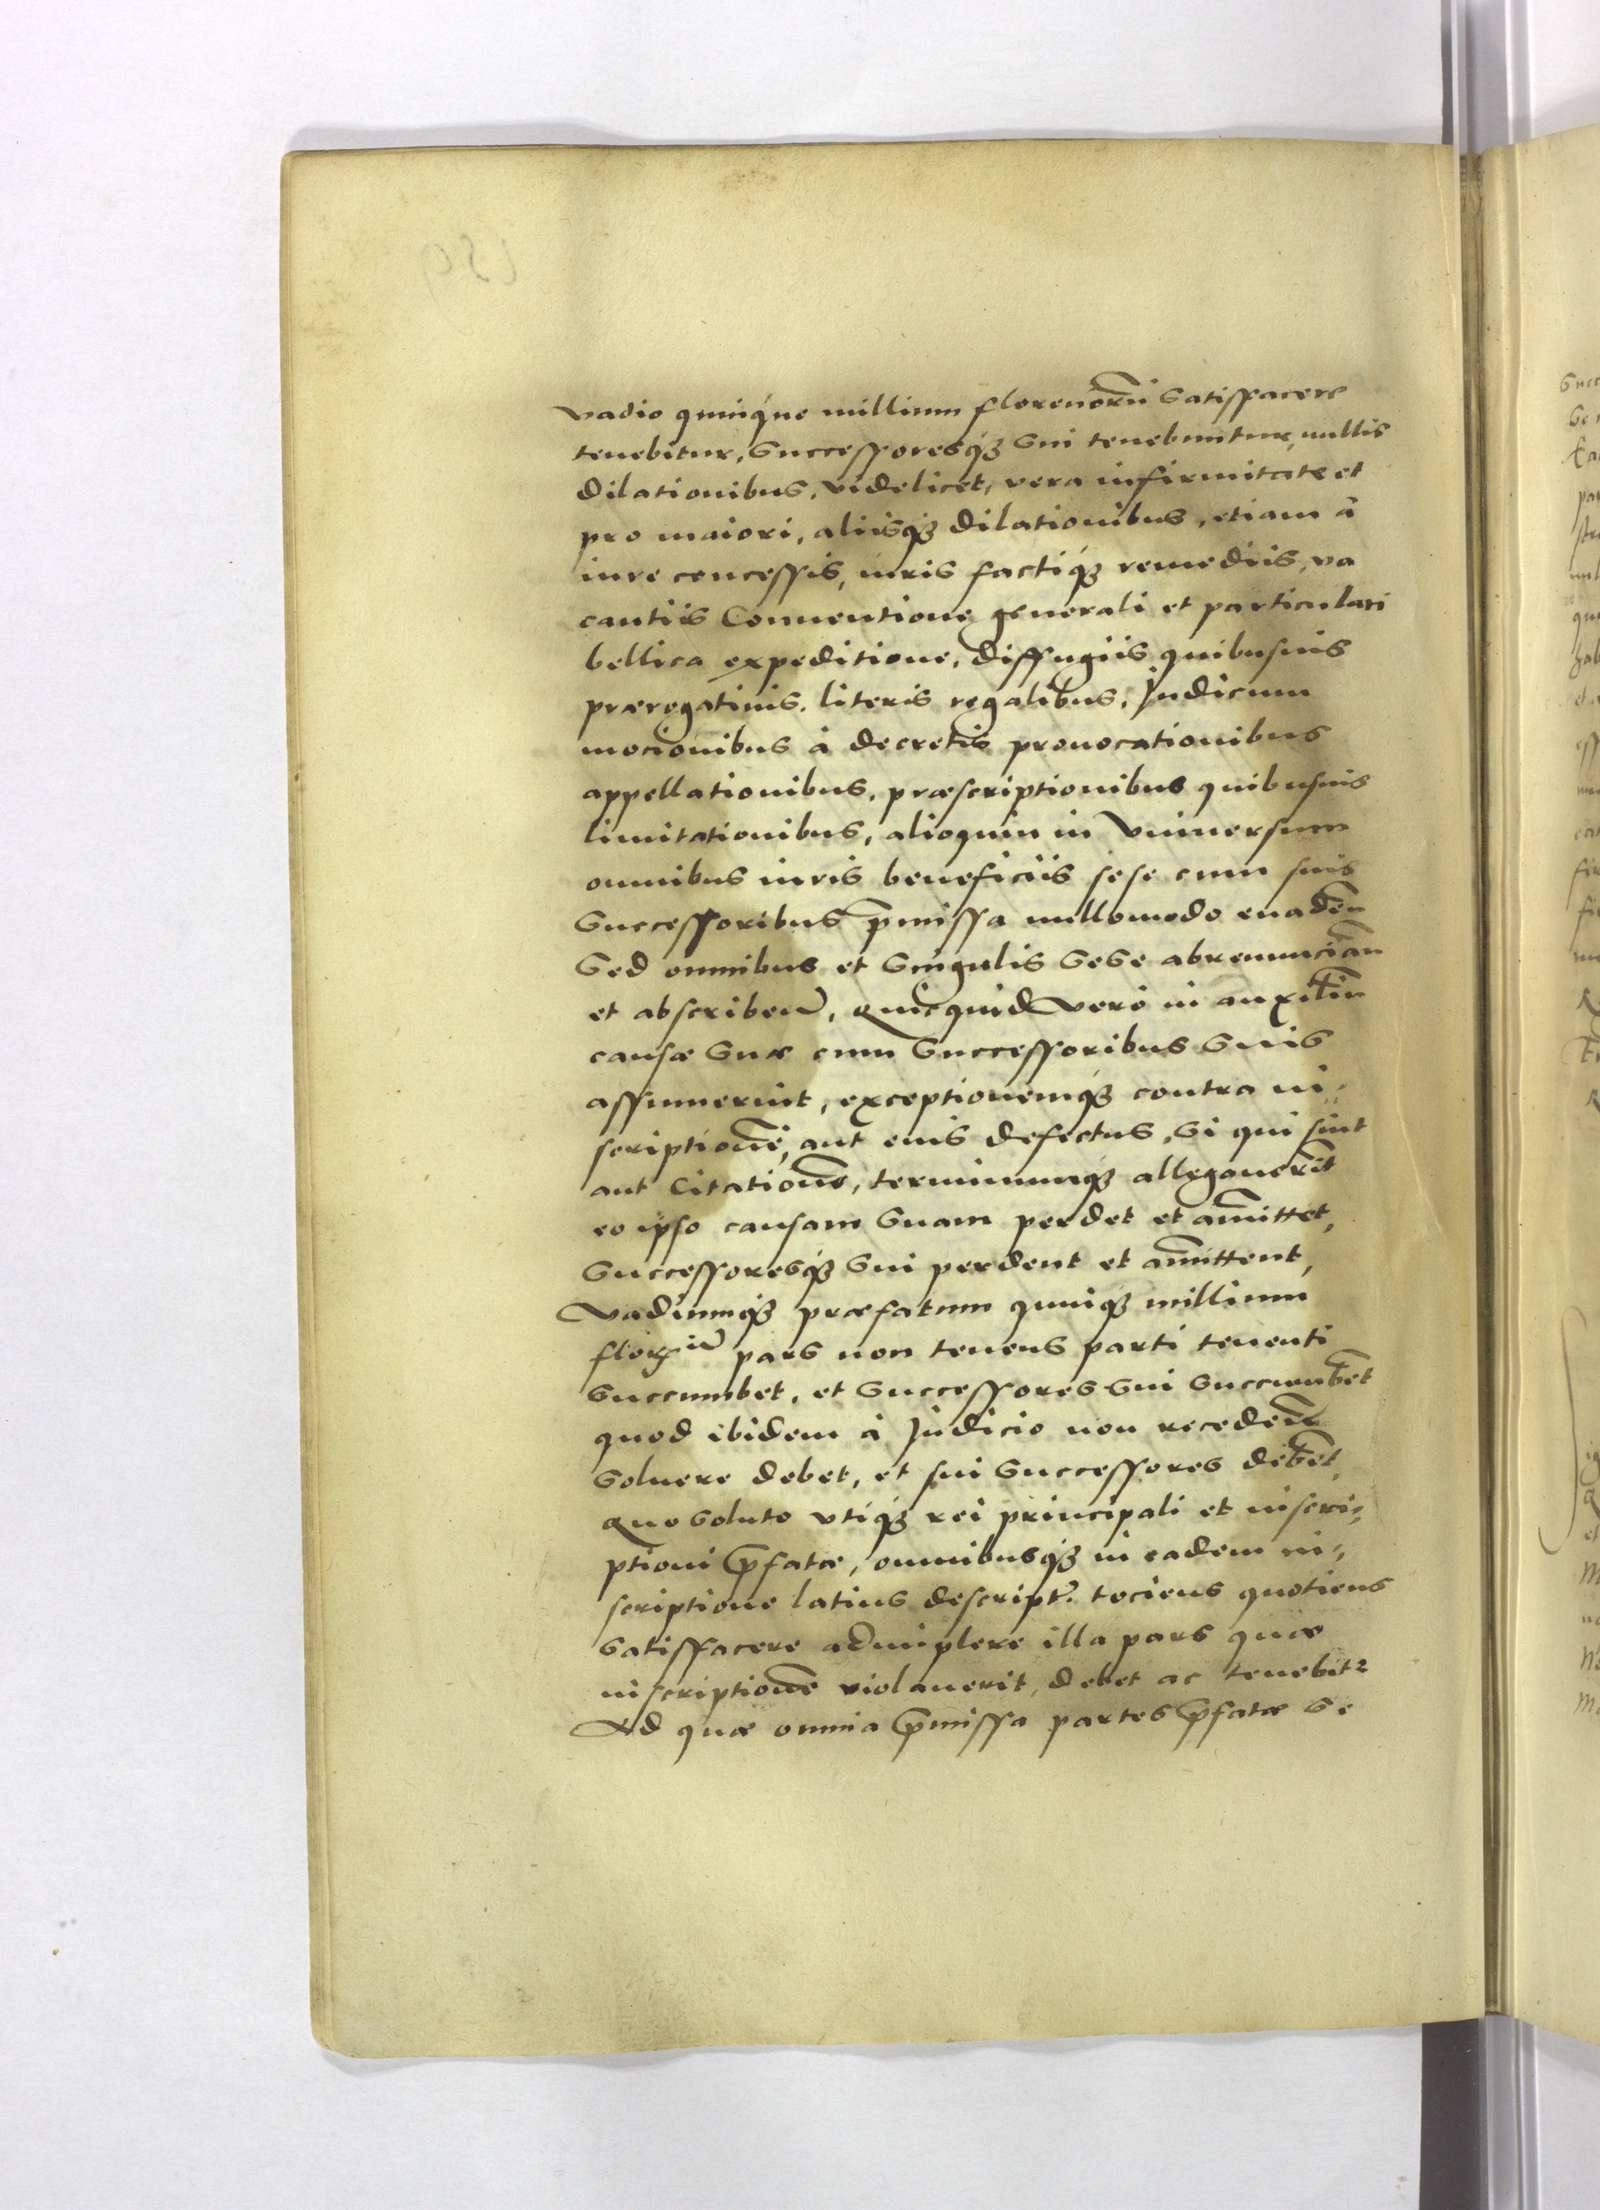 vadio quinque millium florenorū Satisfacere
tenebitur, Successoresq̃ Sui tenebuntur, nullis
dilationibus, videlicet, vera infirmitate et
pro maiori, aliisq̃ dilationibus, etiam à
iure concessis, iuris factiq̃ remediis, va
cantiis Conuentione generali et particulari
bellica expeditione, diffugiis quibusuis
prærogatiuis, literis regalibus, Judicum
mocionibus à decretis prouocationibus
appellationibus, præscriptionibus quibusuis
limitationibus, alioquin in Vniuersum
omnibus iuris beneficiis sese cum suis
Successoribus p̃missa nullomodo euadeñ
Sed omnibus et Singulis Sese abrenuncian̄
et abscribeñ, Quicquid vero in auxiliū
causæ Suæ cum Successoribus Suis
assumerint, exceptionemq̃ contra in=
scriptionē, aut eius defectus, Si qui sint
aut Citationē, terminumq̃ allegauerīt
eo ipso causam Suam perdet et am̄ittet,
Successoresq̃ Sui perdent et am̄ittent,
Vadiumq̃ præfatum quinq̃ millium
flor. pars non tenens parti tenenti
Succumbet, et Successores Sui Succumbēt
quod ibidem à Judicio non recedeñ
Soluere debet, et sui Successores debēt,
Quo Soluto vtiq̃ rei principali et inscri=
ptioni p̃fatæ, omnibusq̃ in eadem in=
scriptione latius descript. tociens quotiens
Satisfacere adimplere illa pars quæ
inscriptionē violauerit, debet ac tenebit᷑
Ad quæ omnia p̃missa partes p̃fatæ Se